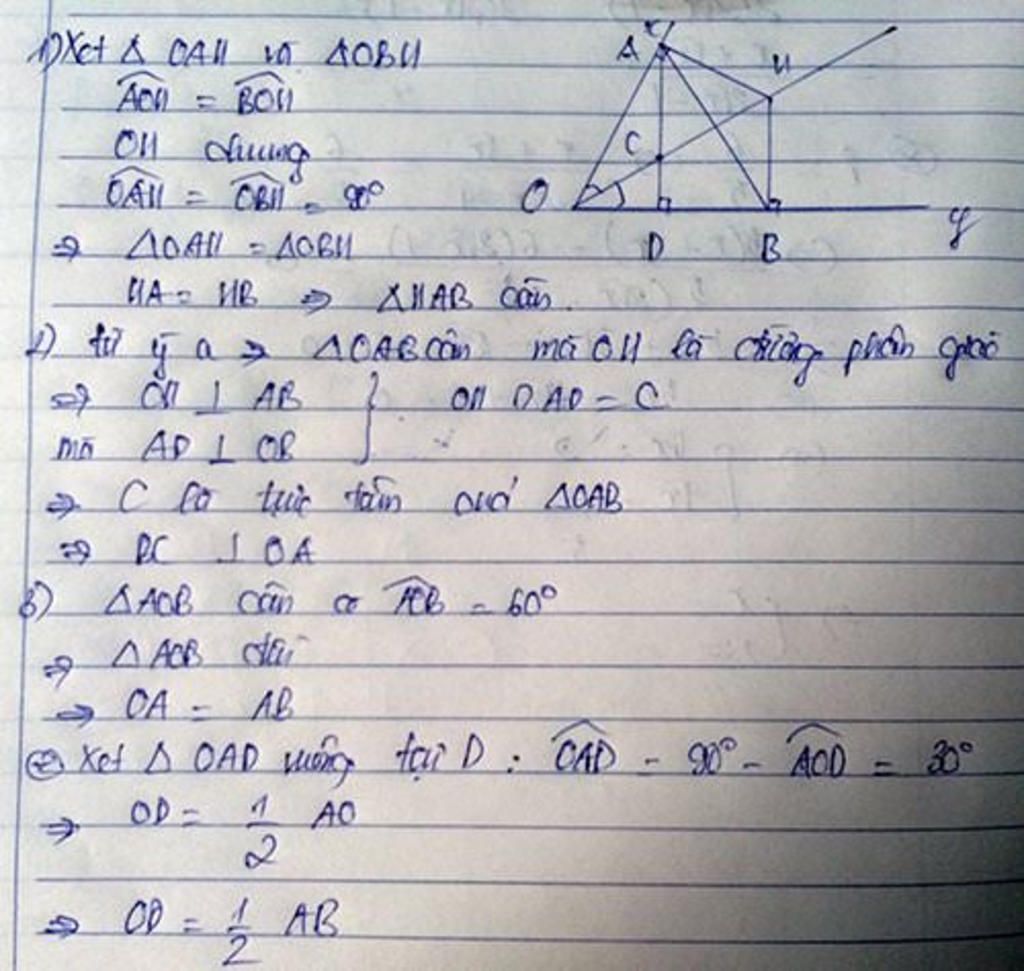 1) Xét Δ OAH và ΔOBH
AOH = BOH
OH chung
OAH = OBH = 90°
⇒ ΔOAH = ΔOBH
HA = HB ⇒ ΔHAB cân.
2) từ ý a ⇒ ΔOAB cân mà OH là đường phân giác
⇒ OH ⊥ AB } OH ∩ AD = C
mà AD ⊥ OB
⇒ C là trực tâm của ΔOAB
⇒ BC ⊥ OA
3) ΔAOB cân có AOB = 60°
⇒ ΔAOB đều
⇒ OA = AB
Xét Δ OAD vuông tại D : OAD = 90° - AOD = 30°
⇒ OD = 1/2 AO
⇒ OD = 1/2 AB
x
A
H
C
O
D
B
y